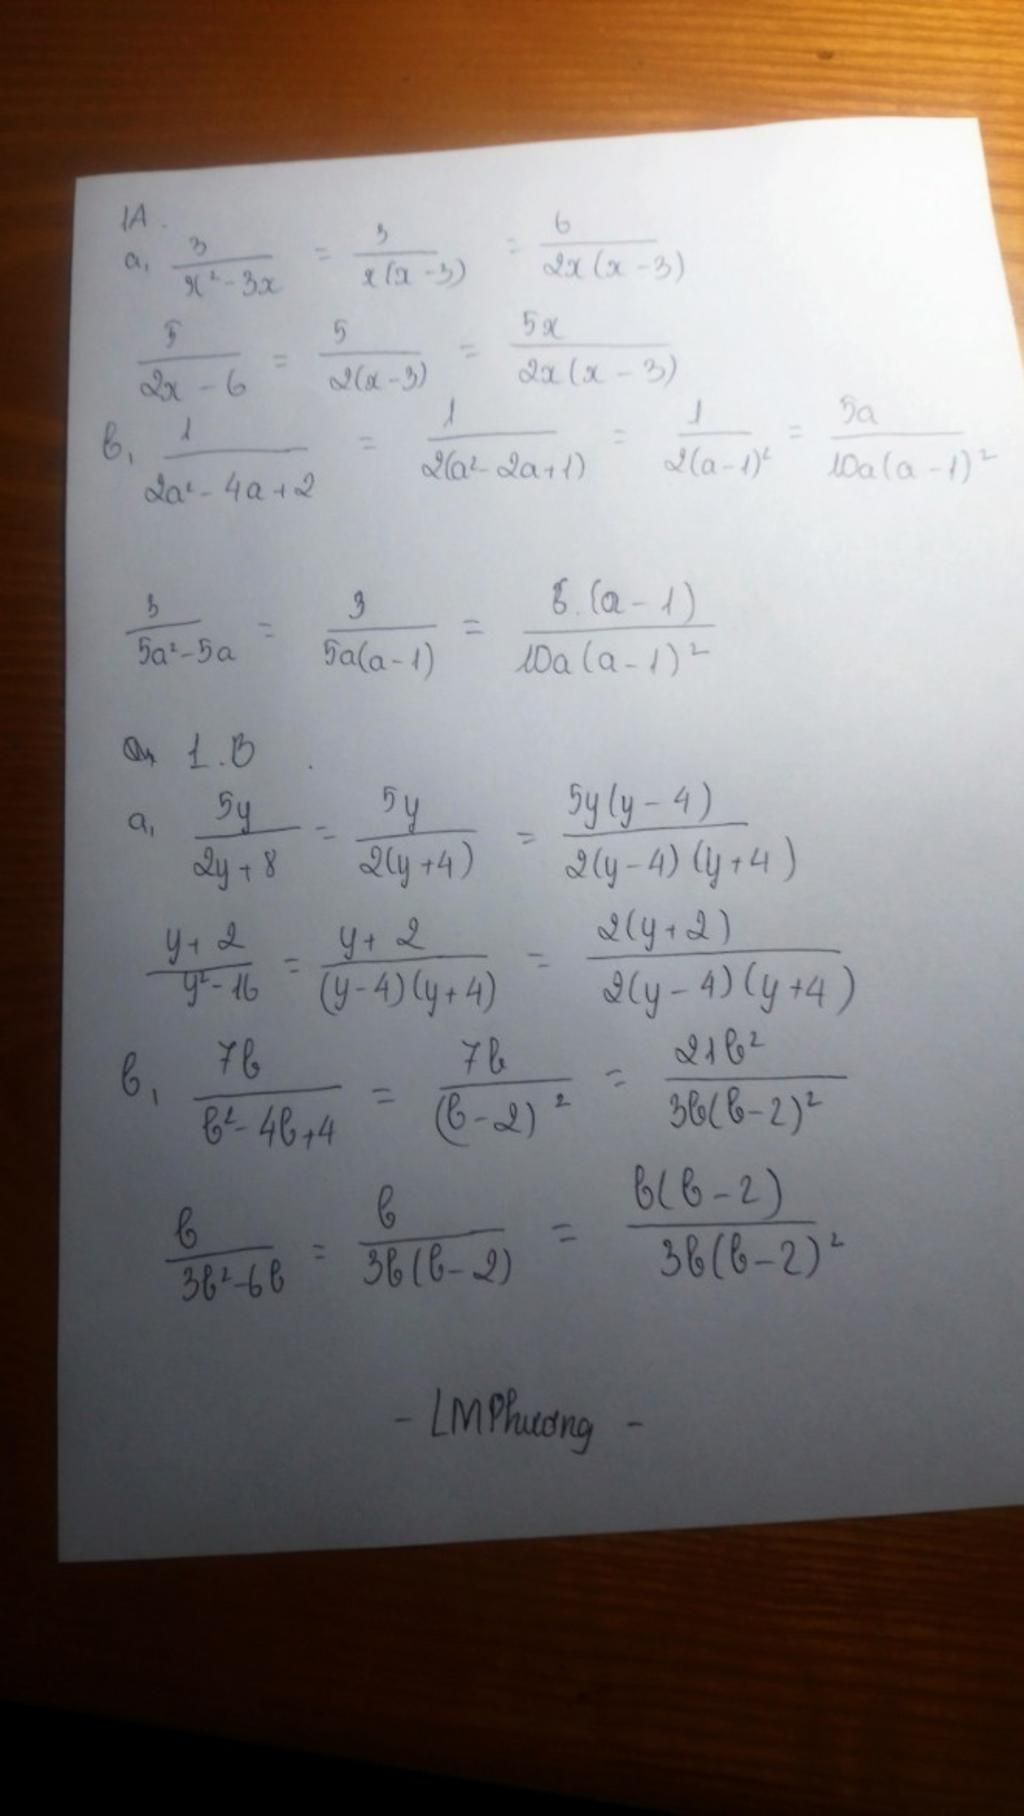 1A.
a, 3/(x² - 3x) = 3/(x(x - 3)) = 6/(2x(x - 3))
5/(2x - 6) = 5/(2(x - 3)) = 5x/(2x(x - 3))
b, 1/(2a² - 4a + 2) = 1/(2(a² - 2a + 1)) = 1/(2(a - 1)²) = 5a/(10a(a - 1)²)
3/(5a² - 5a) = 3/(5a(a - 1)) = 6.(a - 1)/(10a(a - 1)²)
1.B
a, 5y/(2y + 8) = 5y/(2(y + 4)) = 5y(y - 4)/(2(y - 4)(y + 4))
(y + 2)/(y² - 16) = (y + 2)/((y - 4)(y + 4)) = 2(y + 2)/(2(y - 4)(y + 4))
b, 7b/(b² - 4b + 4) = 7b/(b - 2)² = 21b²/(3b(b - 2)²)
b/(3b² - 6b) = b/(3b(b - 2)) = b(b - 2)/(3b(b - 2)²)
- LMPhương -